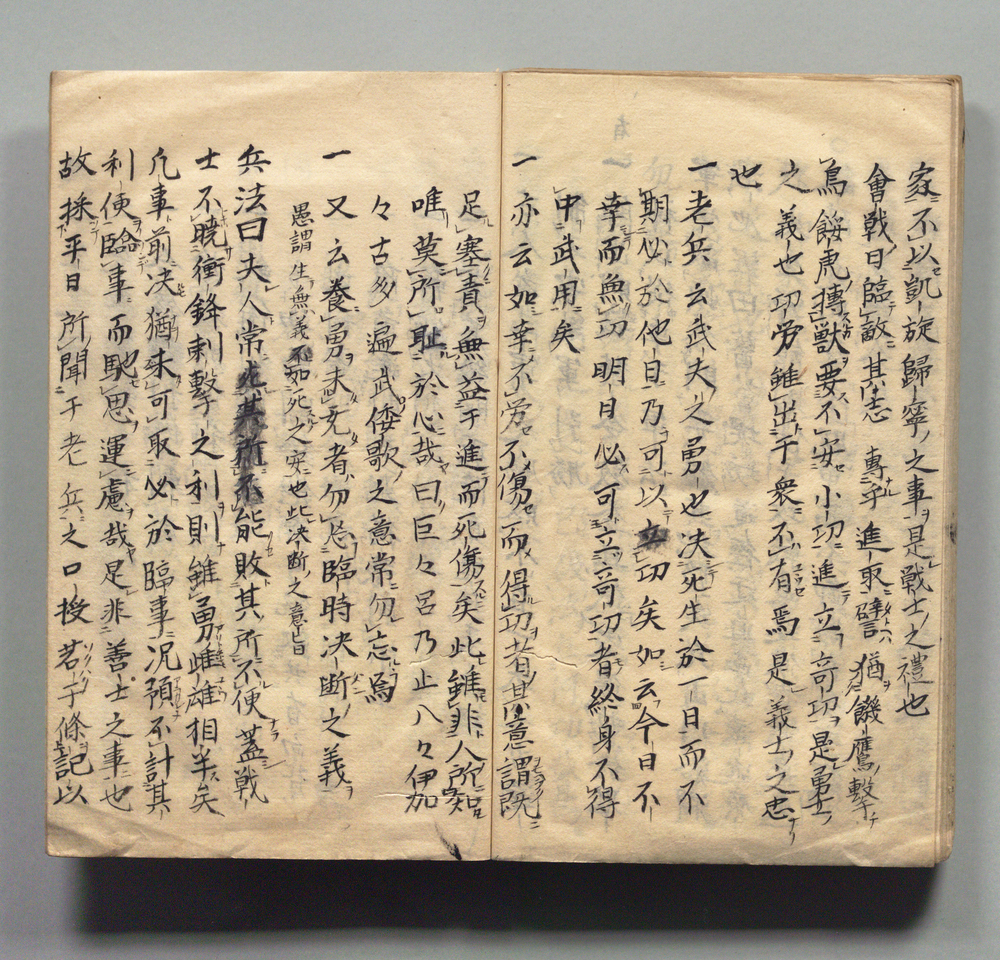 家不以凱旋歸寧之事是戰士之禮也
會戰日臨敵其志專乎進取譬猶饑鷹擊
鳥餒虎摶獸要不安小功進立奇功是勇士
之義也功労雖出于衆不有焉是義士之忠
也
一老兵云武夫之勇也决死生於一日而不
期必於他日乃可以立功矣如云今日不
幸而無功明日必可立奇功者終身不得
中武用矣
一亦云如幸不労不傷而得功者其意謂既
足塞責無益于進而死傷矣此雖非人所知
唯莫所耻於心哉曰巨々呂乃止八々伊加
々古多遍武倭歌之意常勿忘焉
一又云養勇未充者勿忘臨時决断之義
愚謂生無義不如死之寔也此决断之意旨
兵法曰夫人常死其所不能敗其所不便蓋戰
士不曉衝鋒刺擊之利則雖勇雌雄相半矣
凡事前决猶未可取必於臨事况預不計其
利使臨事而馳思運慮哉是非善士之事也
故採平日所聞于老兵之口授若干條記以